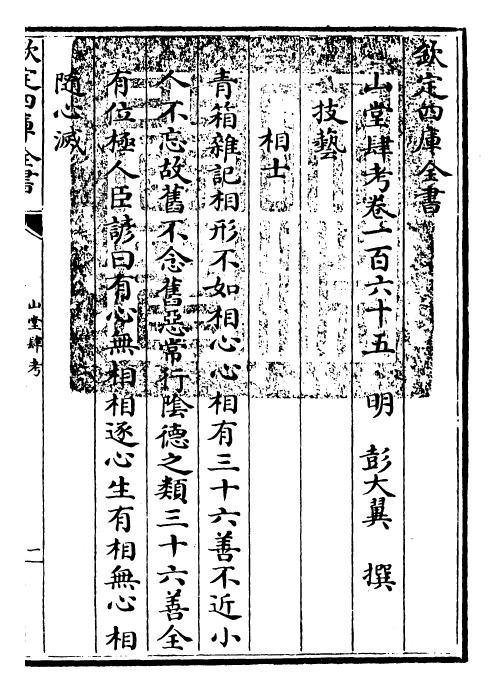 欽定四庫全書
山堂肆考卷一百六十五 明 彭大翼 撰
技藝
相士
青箱雜記相形不如相心心相有三十六善不近小
人不忘故舊不念舊惡常行陰德之類三十六善全
有位極人臣諺曰有心無相相逐心生有相無心相
隨心滅
欽定四庫全書
山堂肆考
二